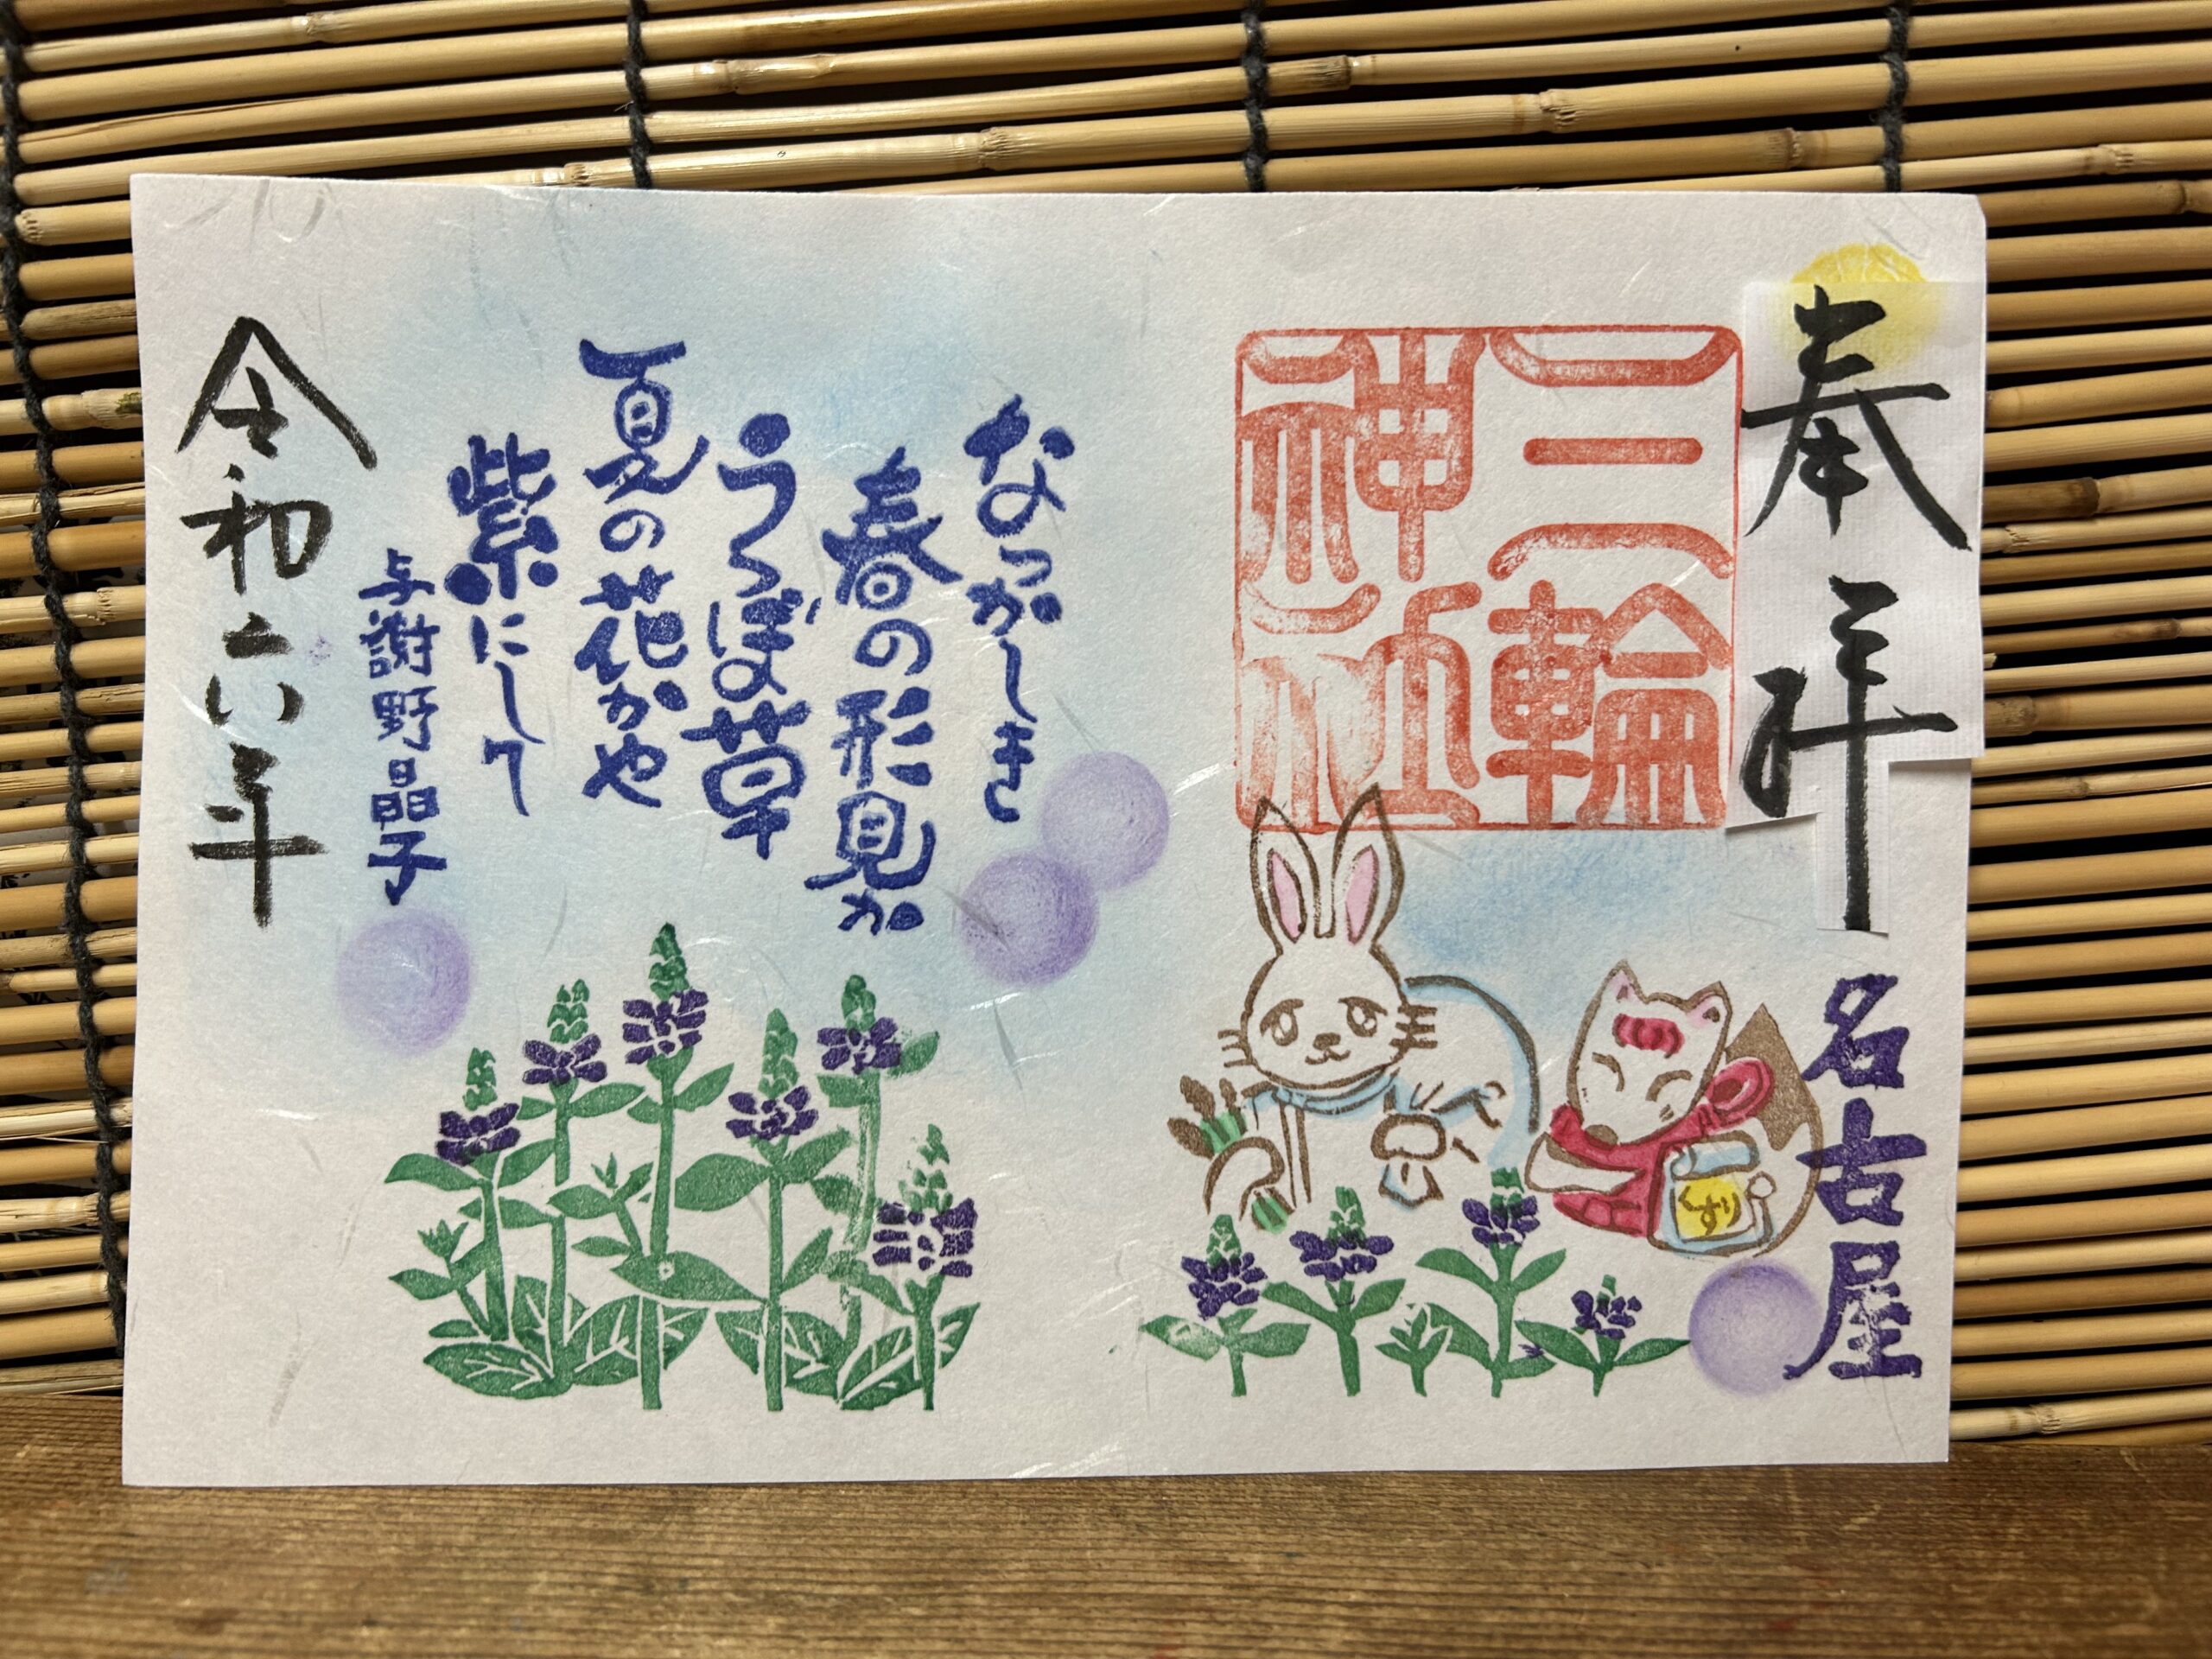 奉拝
名古屋
三輪
神社
くすり
なつかしき
春の形見か
うつぼ草
夏の花かや
紫にして
与謝野晶子
令和六年